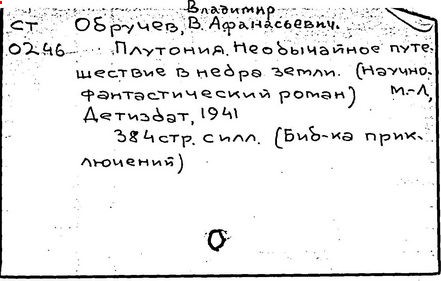 Владимир
СТ Обручев, В. Афанасьевич.
0246 Плутония. Необычайное путе-
шествие в недра земли. (Научно-
фантастический роман) М.-Л,
Детиздат, 1941
384стр. с илл. (Биб-ка прик-
лючений)